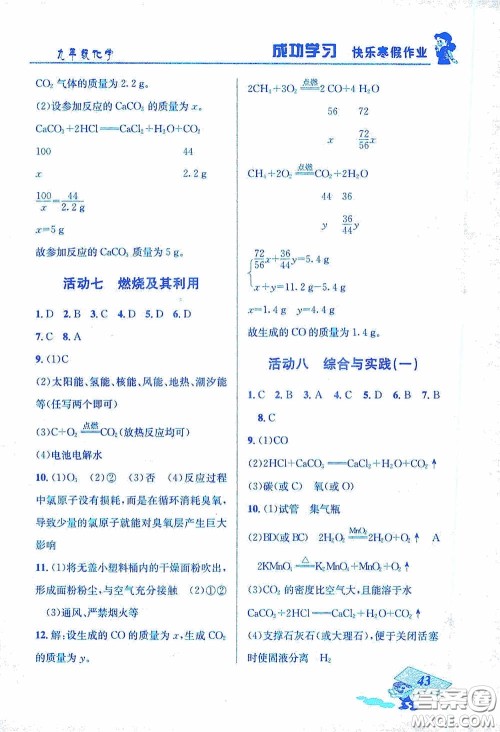 九年级化学
成功学习 快乐寒假作业
CO₂ 气体的质量为 2.2 g。
(2)设参加反应的 CaCO₃ 的质量为 x。
CaCO₃+2HCl══CaCl₂+H₂O+CO₂↑
100 44
x 2.2 g
100/x=44/2.2 g
x=5 g
故参加反应的 CaCO₃ 的质量为 5 g。
活动七 燃烧及其利用
1. D 2. B 3. D 4. D 5. D 6. D
7. C 8. A
9. (1)C
(2)太阳能、氢能、核能、风能、地热、潮汐能
等(任写两个即可)
(3)C+O₂ 点燃══ CO₂(放热反应均可)
(4)电池电解水
10. (1)O₃ (2)② (3)否 (4)反应过程
中氯原子没有损耗,而在循环消耗臭氧,
导致少量的氯原子就能对臭氧层产生巨大
影响
11. (1)将无盖小塑料桶内的干燥面粉吹出,
形成面粉粉尘,与空气充分接触 (2)①②
(3)通风、严禁烟火等
12. 解:设生成的 CO 的质量为 x,生成 CO₂
的质量为 y。
2CH₄+3O₂ 点燃══ 2CO+4H₂O
56 72
x 72/56 x
CH₄+2O₂ 点燃══ CO₂+2H₂O
44 36
y 36/44 y
{72/56 x+36/44 y=5.4 g
x+y=11.4-5.4 g
x=1.4 g
故生成的 CO 的质量为 1.4 g。
活动八 综合与实践(一)
1. C 2. B 3. C 4. C 5. D 6. A 7. B
8. C
9. (1)CO
(2)2HCl+CaCO₃══CaCl₂+H₂O+CO₂↑
(3)碳(或 C) 氧(或 O)
10. (1)试管 集气瓶
(2)BD(或 BC) 2H₂O₂ MnO₂══ 2H₂O+O₂↑
2KMnO₄ △══ K₂MnO₄+MnO₂+O₂↑
(3)CO₂ 的密度比空气大,且能溶于水
CaCO₃+2HCl══CaCl₂+H₂O+CO₂↑
(4)支撑石灰石(或大理石),便于关闭活塞
时使固液分离 H₂
43
答案圈
MXQE.COM